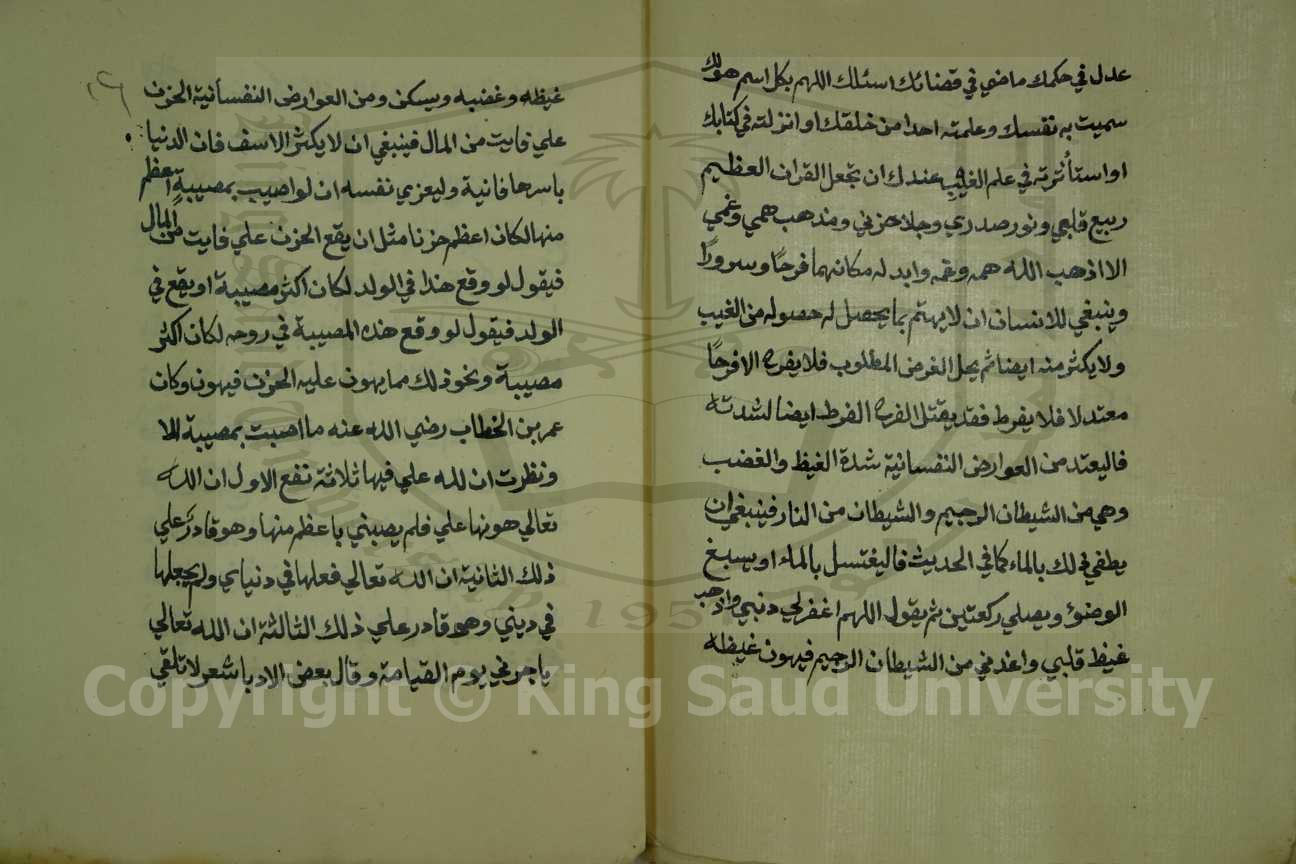 عدل في حكمك ماضي في قضائك اسئلك اللهم بكل اسم هولك
سميت به نفسك وعلمته احدا من خلقك او انزلته في كتابك
او استأثرته في علم الغيب عندك ان تجعل القران العظيم
ربيع قلبي ونور صدري وجلا حزني ومذهب همي وغمي
الا اذهب الله همه وغمه وابدله مكانهما فرحًا وسرورًا
وينبغي للانسان ان لا يهتم بما يحصل له حصوله من الغيب
ولا يكثر منه ايضا ثم يحل الغرض المطلوب فلا يفرح الا فرحًا
معتدلا فلا يفرط فقد يقتل الفرح الفرط ايضا لشدته
فاليعتد من العوارض النفسانية شدة الغيظ والغضب
وهي من الشيطان الرجيم والشيطان من النار فينبغي ان
يطفي ذلك بالماء كما في الحديث فاليغتسل بالماء او يسبغ
الوضؤ ويصلي ركعتين ثم يقول اللهم اغفر لي ذنبي واذهب
غيظ قلبي واعذني من الشيطان الرجيم فيهون غيظه
غيظه وغضبه ويسكن ومن العوارض النفسأنية الحزن
علي فايت من المال فينبغي ان لا يكثر الاسف فان الدنيا
باسرها فانية وليعزي نفسه ان لو اصيب بمصيبةٍ اعظم
منها لكان اعظم حزنا مثل ان يقع الحزن علي فايت من المال
فيقول لو وقع هذا في الولد لكان اكثر مصيبة او يقع في
الولد فيقول لو وقع هذه المصيبة في روحه لكان اكثر
مصيبة ونحو ذلك مما يهون عليه الحزن فيهون وكان
عمر بن الخطاب رضي الله عنه ما اصبت بمصيبة الا
ونظرت ان لله علي فيها ثلاثة نفع الاول ان الله
تعالي هونها علي فلم يصبني باعظم منها وهو قادر علي
ذلك الثانية ان الله تعالي فعلها في دنياي ولم يجعلها
في ديني وهو قادر علي ذلك الثالثة ان الله تعالي
ياجرني يوم القيامة وقال بعض الادبا شعر لا تلقي
Copyright © King Saud University
1957